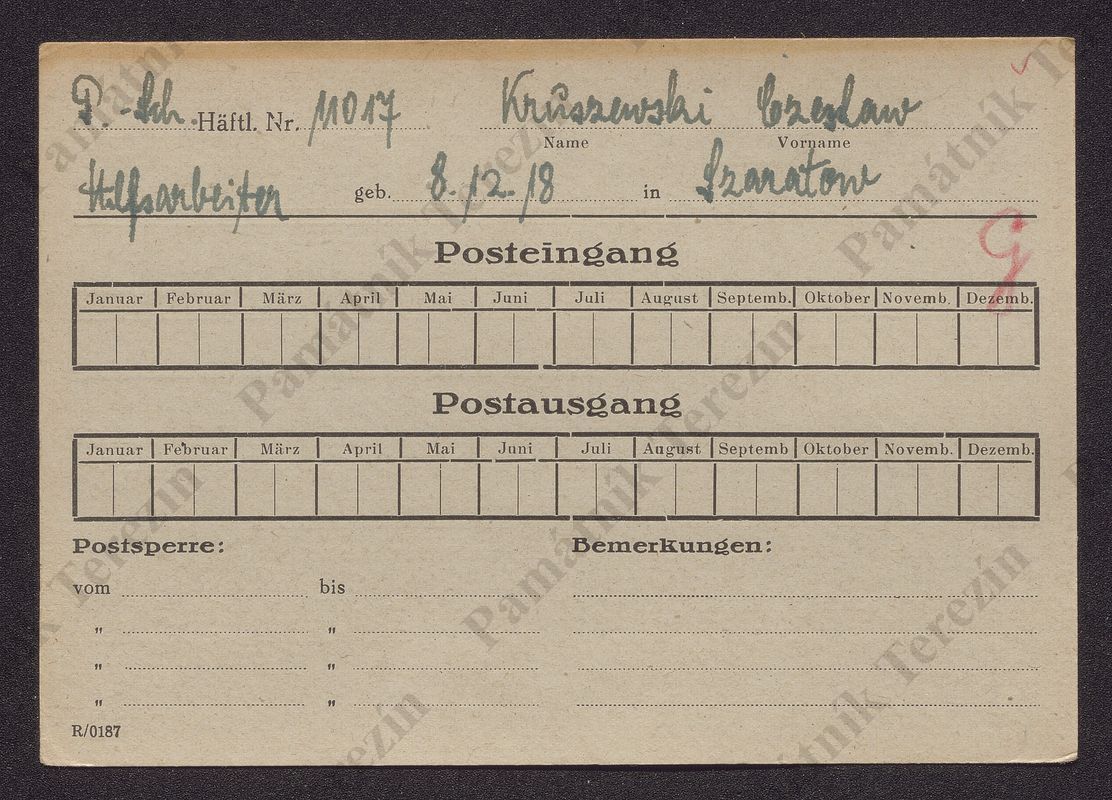 P.-Sch. Häftl. Nr. 11017 Kruszewski Czesław
Name Vorname
Hilfsarbeiter geb. 8./12./18 in Szaratow
G
Posteingang
Januar Februar März April Mai Juni Juli August Septemb. Oktober Novemb. Dezemb.
Postausgang
Januar Februar März April Mai Juni Juli August Septemb Oktober Novemb. Dezemb.
Postsperre: Bemerkungen:
vom bis
" "
" "
" "
R/0187
Památník Terezín